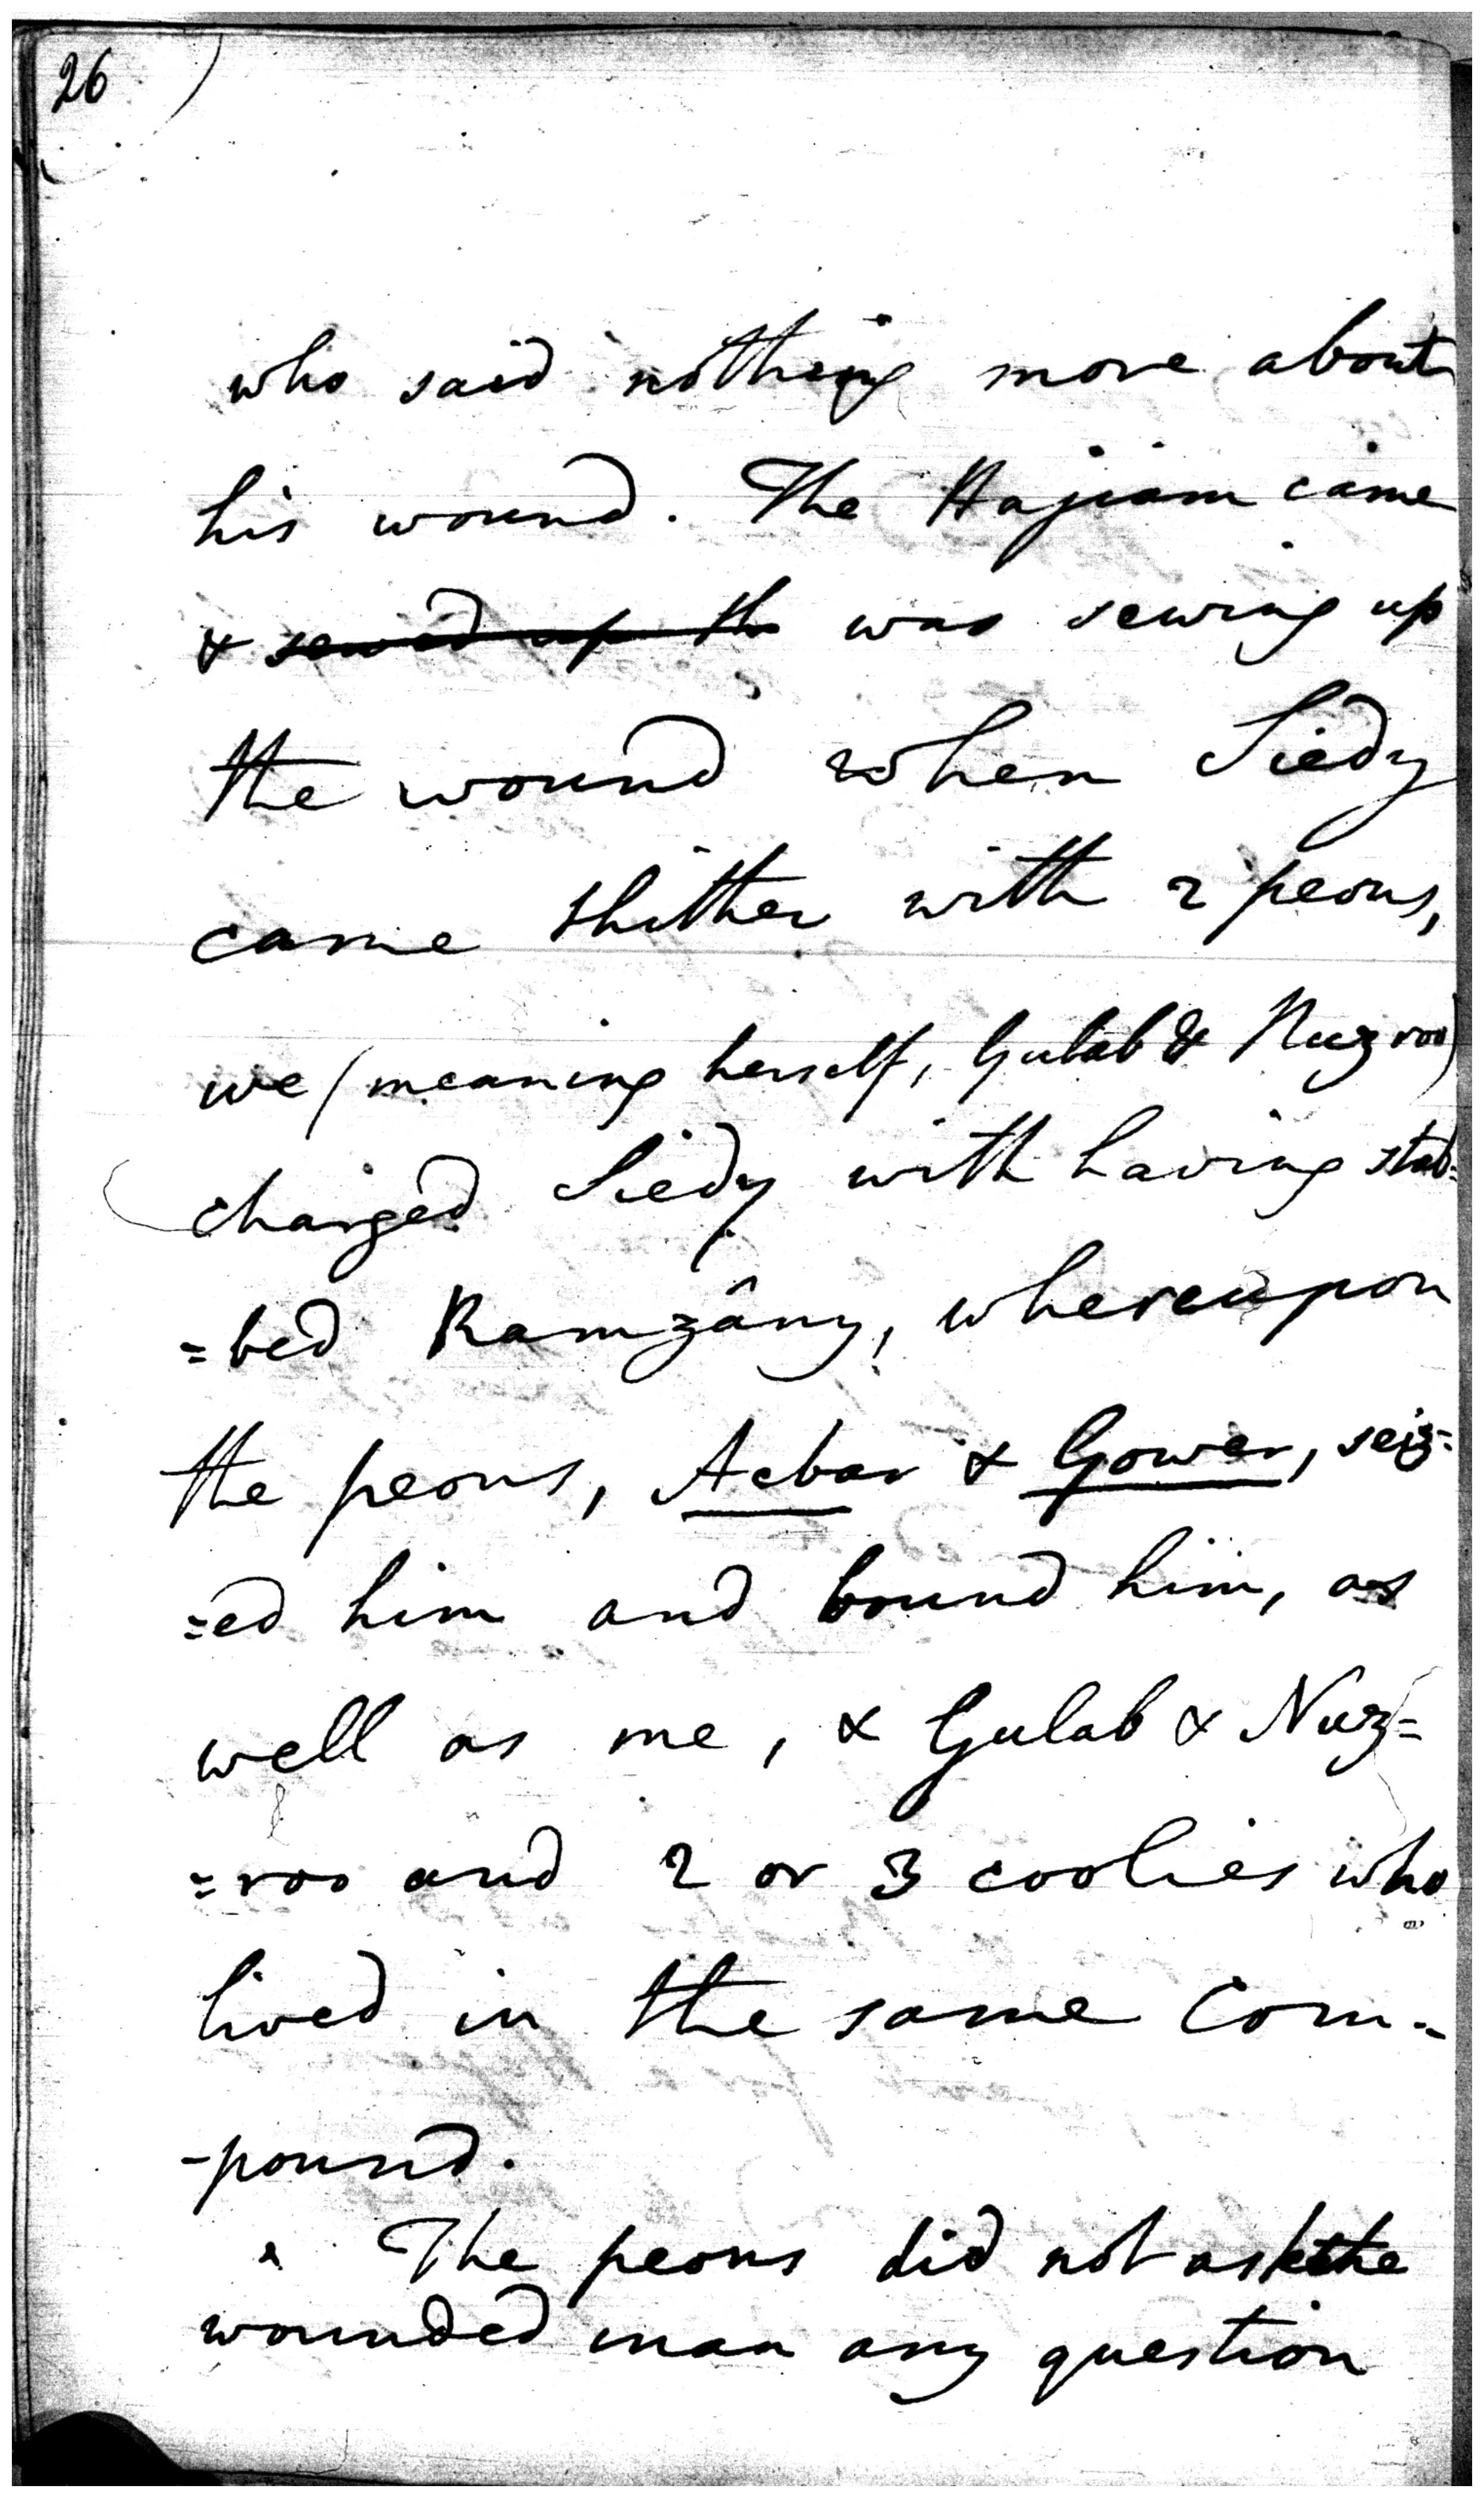 26
who said nothing more about
his wound. The Hajiam came
& sewed up th was sewing up
the wound when Siedy
came thither with 2 peons,
we (meaning herself, Gulab & Nuzroo)
charged Siedy with having stab=
=bed Ramzâny, whereupon
the peons, Acbar & Gower, seiz=
=ed him and bound him, as
well as me, & Gulab & Nuz=
=roo and 2 or 3 coolies who
lived in the same com-
-pound.
The peons did not ask the
wounded man any question